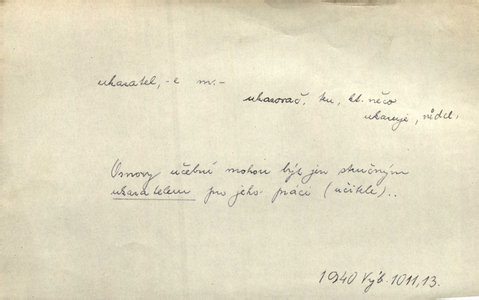 ukazatel, -e m. -
ukazovač, ten, kt. něco
ukazuje, vůdce.
Osnovy učební mohou být jen stručným
ukazatelem pro jeho práci (učitele)..
1940 Výb. 1011,13.